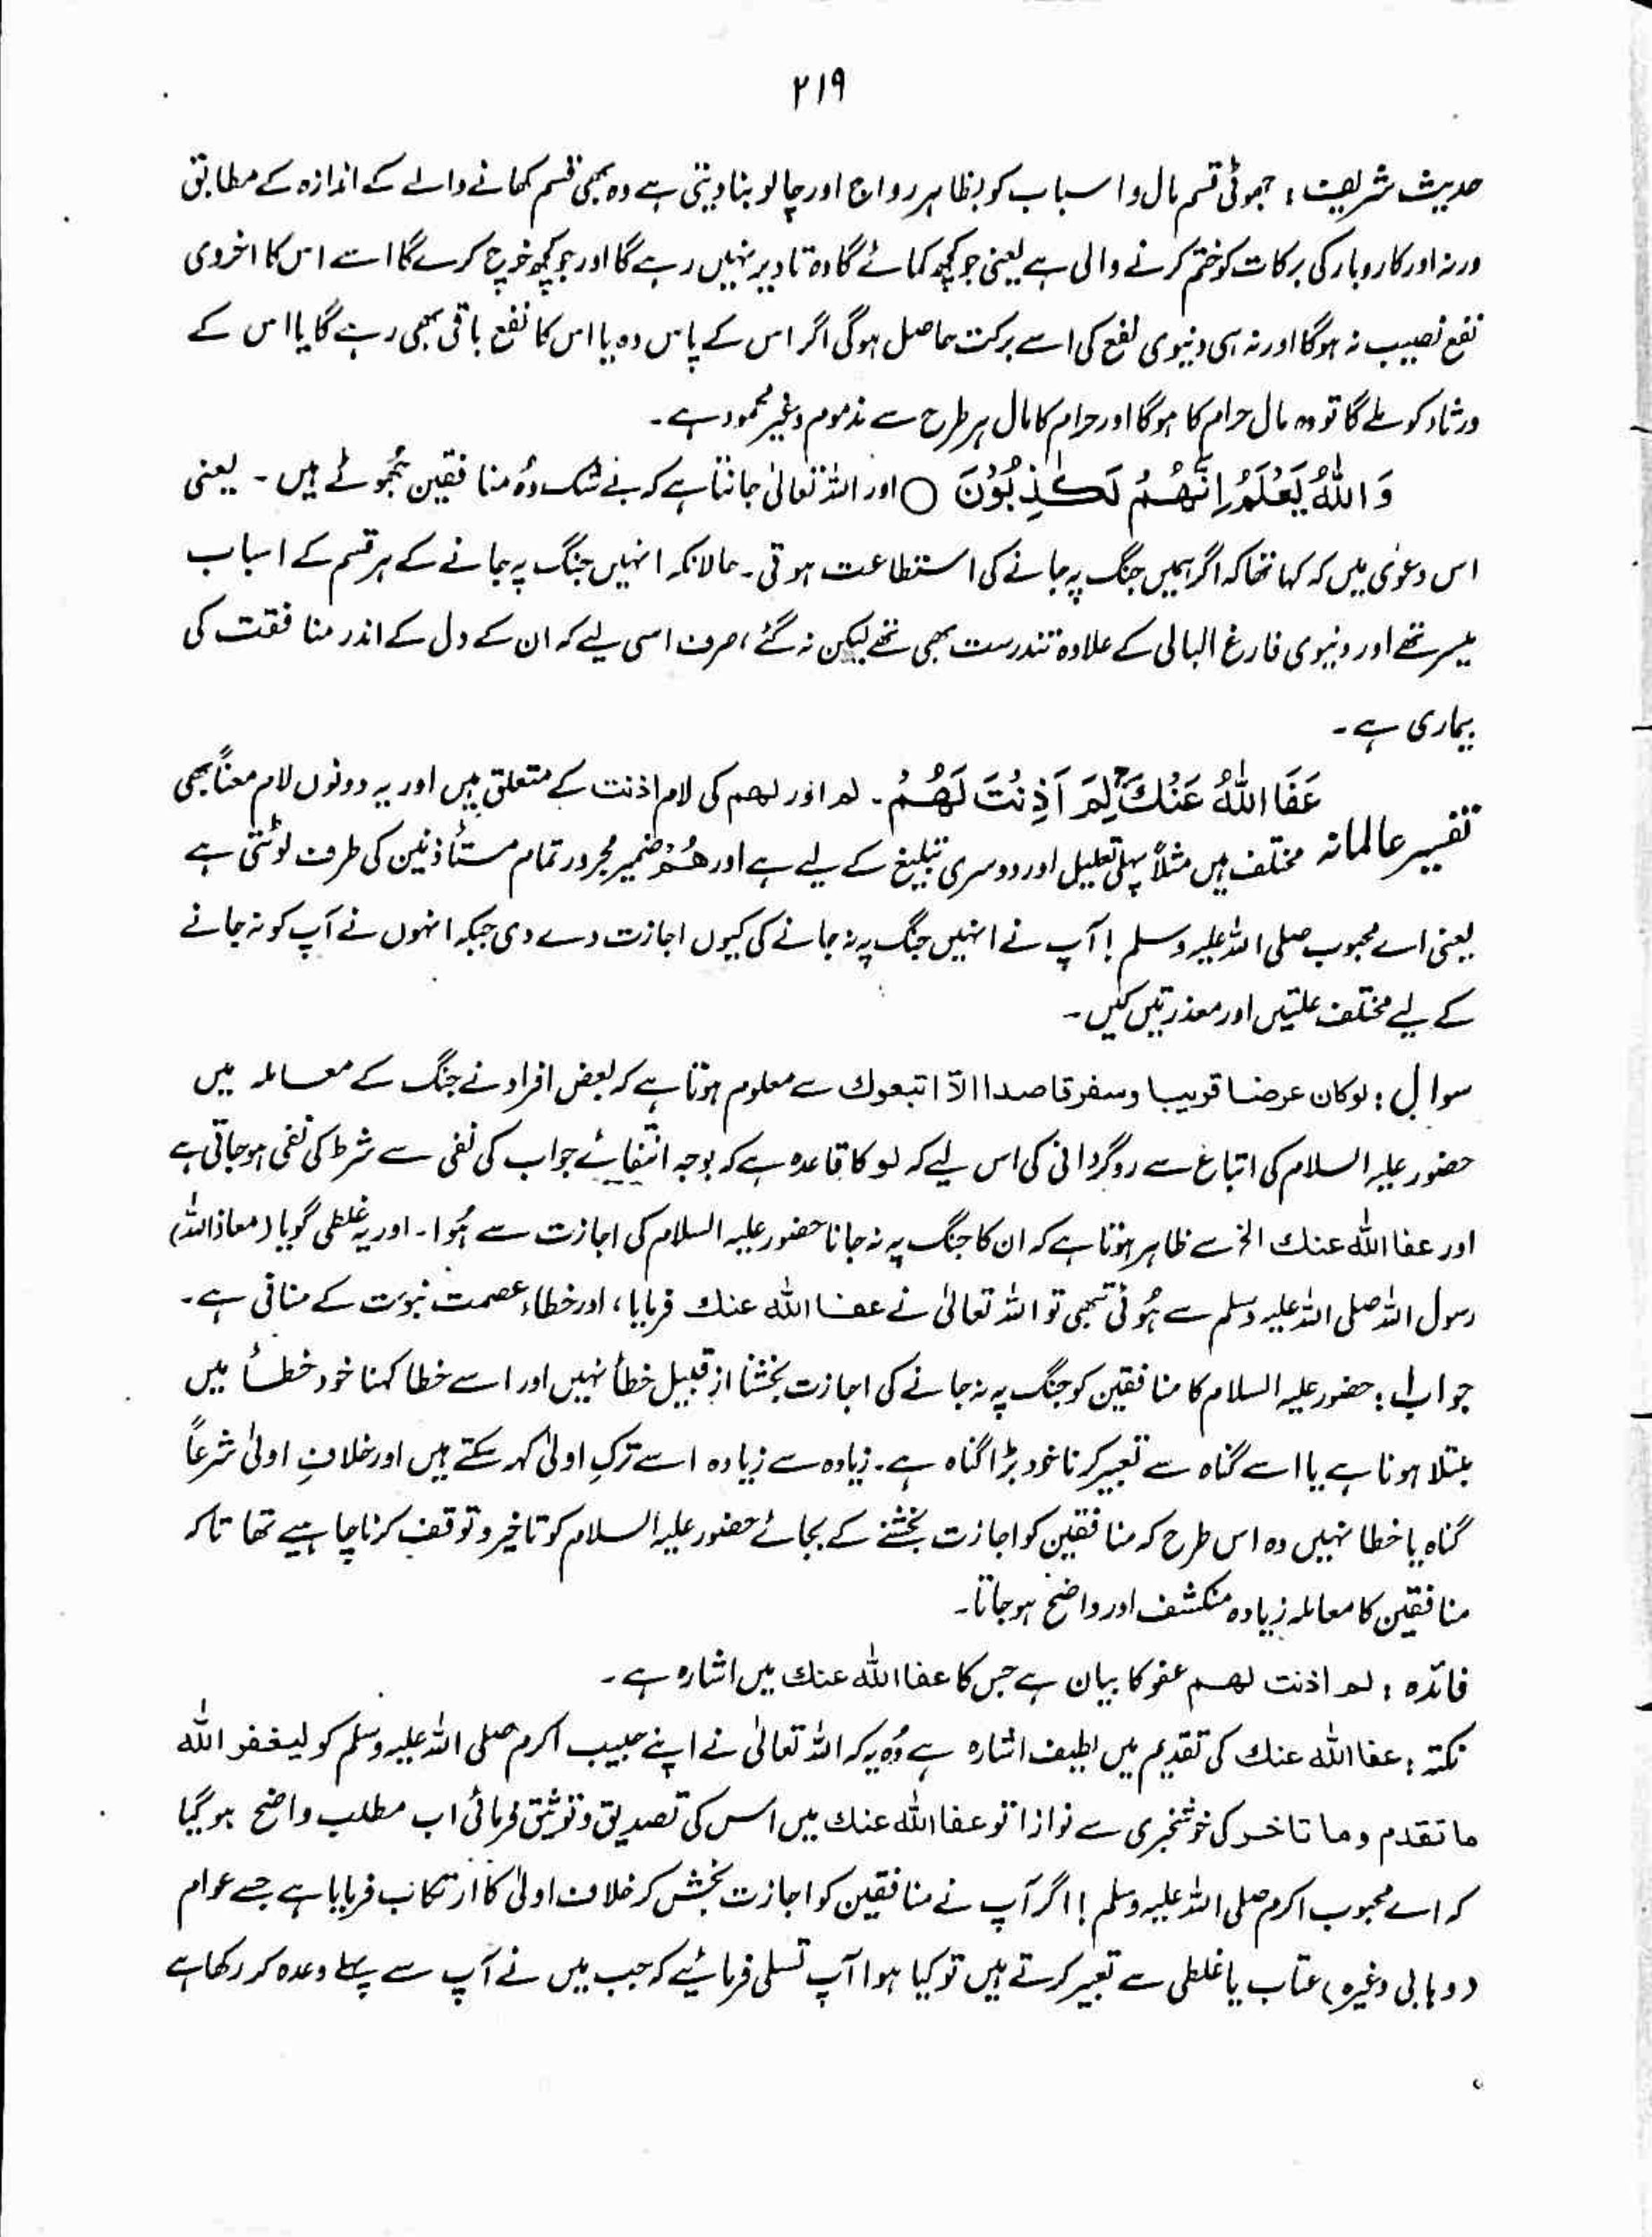 ۲۱۹
حدیث شریف : جھوٹی قسم مال و اسباب کو بظاہر رواج اور چالو بنا دیتی ہے وہ بھی قسم کھانے والے کے اندازہ کے مطابق
ورنہ اور کاروبار کی برکات کو ختم کرنے والی ہے یعنی جو کچھ کمائے گا وہ تا دیر نہیں رہے گا اور جو کچھ خرچ کرے گا اسے اس کا اخروی
نفع نصیب نہ ہوگا اور نہ ہی دنیوی نفع کی اسے برکت حاصل ہوگی اگر اس کے پاس وہ یا اس کا نفع باقی بھی رہے گا یا اس کے
ورثاء کو ملے گا تو وہ مال حرام کا ہوگا اور حرام کا مال ہر طرح سے مذموم وغیر محمود ہے ۔
وَاللّٰهُ يَعْلَمُ اِنَّهُمْ لَكٰذِبُوْنَ ○ اور اللہ تعالیٰ جانتا ہے کہ بے شک وُہ منافقین جُھوٹے ہیں ۔ یعنی
اس دعوٰی میں کہ کہا تھا کہ اگر ہمیں جنگ پہ جانے کی استطاعت ہوتی ۔ حالانکہ انہیں جنگ پہ جانے کے ہر قسم کے اسباب
میسر تھے اور دنیوی فارغ البالی کے علاوہ تندرست بھی تھے لیکن نہ گئے ، صرف اسی لیے کہ ان کے دل کے اندر منافقت کی
بیماری ہے ۔
عَفَا اللّٰهُ عَنْكَ ۚ لِمَ اَذِنْتَ لَهُمْ ۔ لم اور لهم کی لام اذنت کے متعلق ہیں اور یہ دونوں لام معناً بھی
تفسیر عالمانہ مختلف ہیں مثلاً پہلی تعلیل اور دوسری تبلیغ کے لیے ہے اور هُمْ ضمیر مجرور تمام مستأذنین کی طرف لوٹتی ہے
یعنی اے محبوب صلی اللہ علیہ وسلم ! آپ نے انہیں جنگ پہ نہ جانے کی کیوں اجازت دے دی جبکہ انہوں نے آپ کو نہ جانے
کے لیے مختلف علتیں اور معذرتیں کیں ۔
سوال : لوكان عرضا قريبا وسفر قاصدا الاّ اتبعوك سے معلوم ہوتا ہے کہ بعض افراد نے جنگ کے معاملہ میں
حضور علیہ السلام کی اتباع سے روگردانی کی اس لیے کہ لو کا قاعدہ ہے کہ بوجہ انتفائے جواب کی نفی سے شرط کی نفی ہوجاتی ہے
اور عفا الله عنك الخ سے ظاہر ہوتا ہے کہ ان کا جنگ پہ نہ جانا حضور علیہ السلام کی اجازت سے ہُوا ۔ اور یہ غلطی گویا (معاذ اللہ)
رسول اللہ صلی اللہ علیہ وسلم سے ہُوئی تبھی تو اللہ تعالیٰ نے عفا الله عنك فرمایا ، اور خطاء عصمت نبوّت کے منافی ہے ۔
جواب : حضور علیہ السلام کا منافقین کو جنگ پہ نہ جانے کی اجازت بخشنا از قبیل خطأ نہیں اور اسے خطا کہنا خود خطأ میں
مبتلا ہونا ہے یا اسے گناہ سے تعبیر کرنا خود بڑا گناہ ہے ۔ زیادہ سے زیادہ اسے ترکِ اولیٰ کہہ سکتے ہیں اور خلافِ اولیٰ شرعاً
گناہ یا خطا نہیں وہ اس طرح کہ منافقین کو اجازت بخشنے کے بجائے حضور علیہ السلام کو تاخیر و توقف کرنا چاہیے تھا تاکہ
منافقین کا معاملہ زیادہ منکشف اور واضح ہوجاتا ۔
فائدہ : لم اذنت لهم عفو کا بیان ہے جس کا عفا الله عنك میں اشارہ ہے ۔
نکتہ : عفا الله عنك کی تقدیم میں لطیف اشارہ ہے وُہ یہ کہ اللہ تعالیٰ نے اپنے حبیب اکرم صلی اللہ علیہ وسلم کو ليغفر الله
ما تقدم وما تاخر کی خوشخبری سے نوازا تو عفا الله عنك میں اس کی تصدیق و توثیق فرمائی اب مطلب واضح ہوگیا
کہ اے محبوب اکرم صلی اللہ علیہ وسلم ! اگر آپ نے منافقین کو اجازت بخش کر خلاف اولیٰ کا ارتکاب فرمایا ہے جسے عوام
(وہابی وغیرہ) عتاب یا غلطی سے تعبیر کرتے ہیں تو کیا ہوا آپ تسلی فرمائیے کہ جب میں نے آپ سے پہلے وعدہ کر رکھا ہے